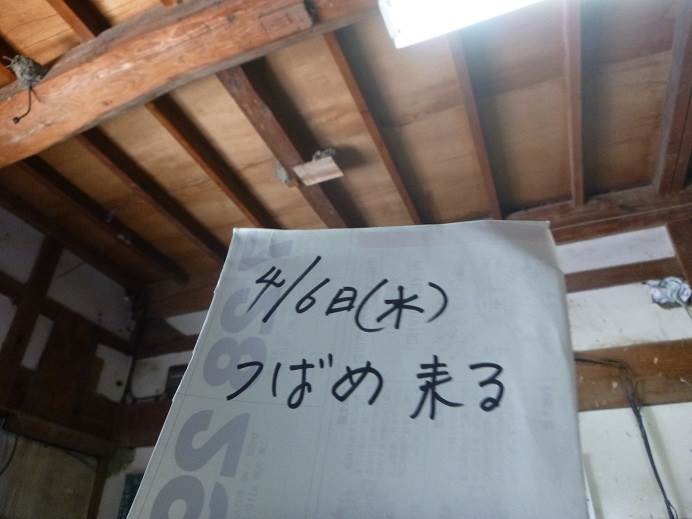 4/6日(水)
つばめ 来る